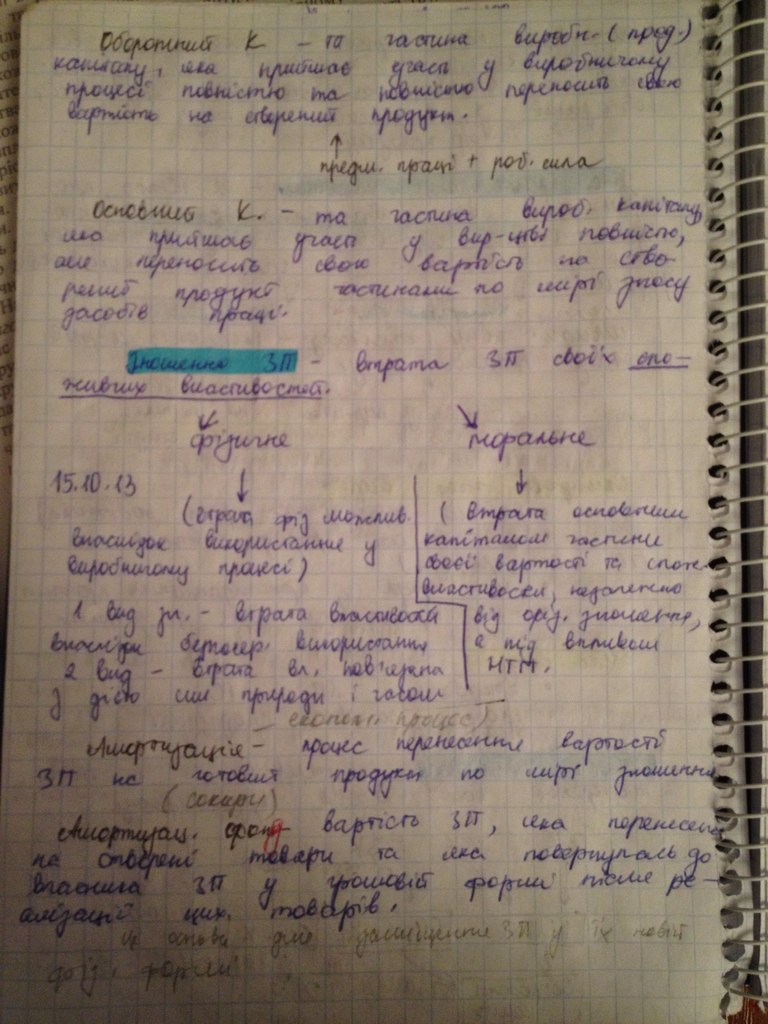 Оборотний К – та частина виробн. (прод.)
капіталу, яка приймає участь у виробничому
процесі повністю та повністю переносить свою
вартість на створений продукт.
предм. праці + роб. сила
Основний К. – та частина вироб. капіталу,
яка приймає участь у вир-цтві повністю,
але переносить свою вартість на ство-
рений продукт частинами по мірі зносу
засобів праці.
Зношення ЗП – втрата ЗП своїх спо-
живчих властивостей.
фізичне моральне
15.10.13
(втрата фіз можлив.
внаслідок використання у
виробничому процесі)
1 вид зн. – втрата властивости
внаслідок безпосер. використання
2 вид – втрата вл. пов'язана
з дією сил природи і часом
(втрата основним
капіталом частини
своєї вартості та спож.
властивостей, незалежно
від фіз. зношення,
а під впливом
НТП.
економ. процес)
Амортизація – процес перенесення вартості
ЗП на готовий продукт по мірі зношення
(сокири)
Амортизац. фонд вартість ЗП, яка перенесена
на створені товари та яка повернулась до
власника ЗП у грошовій формі після ре-
алізації цих товарів.
основа для заміщення ЗП у їх новій
фіз. формі